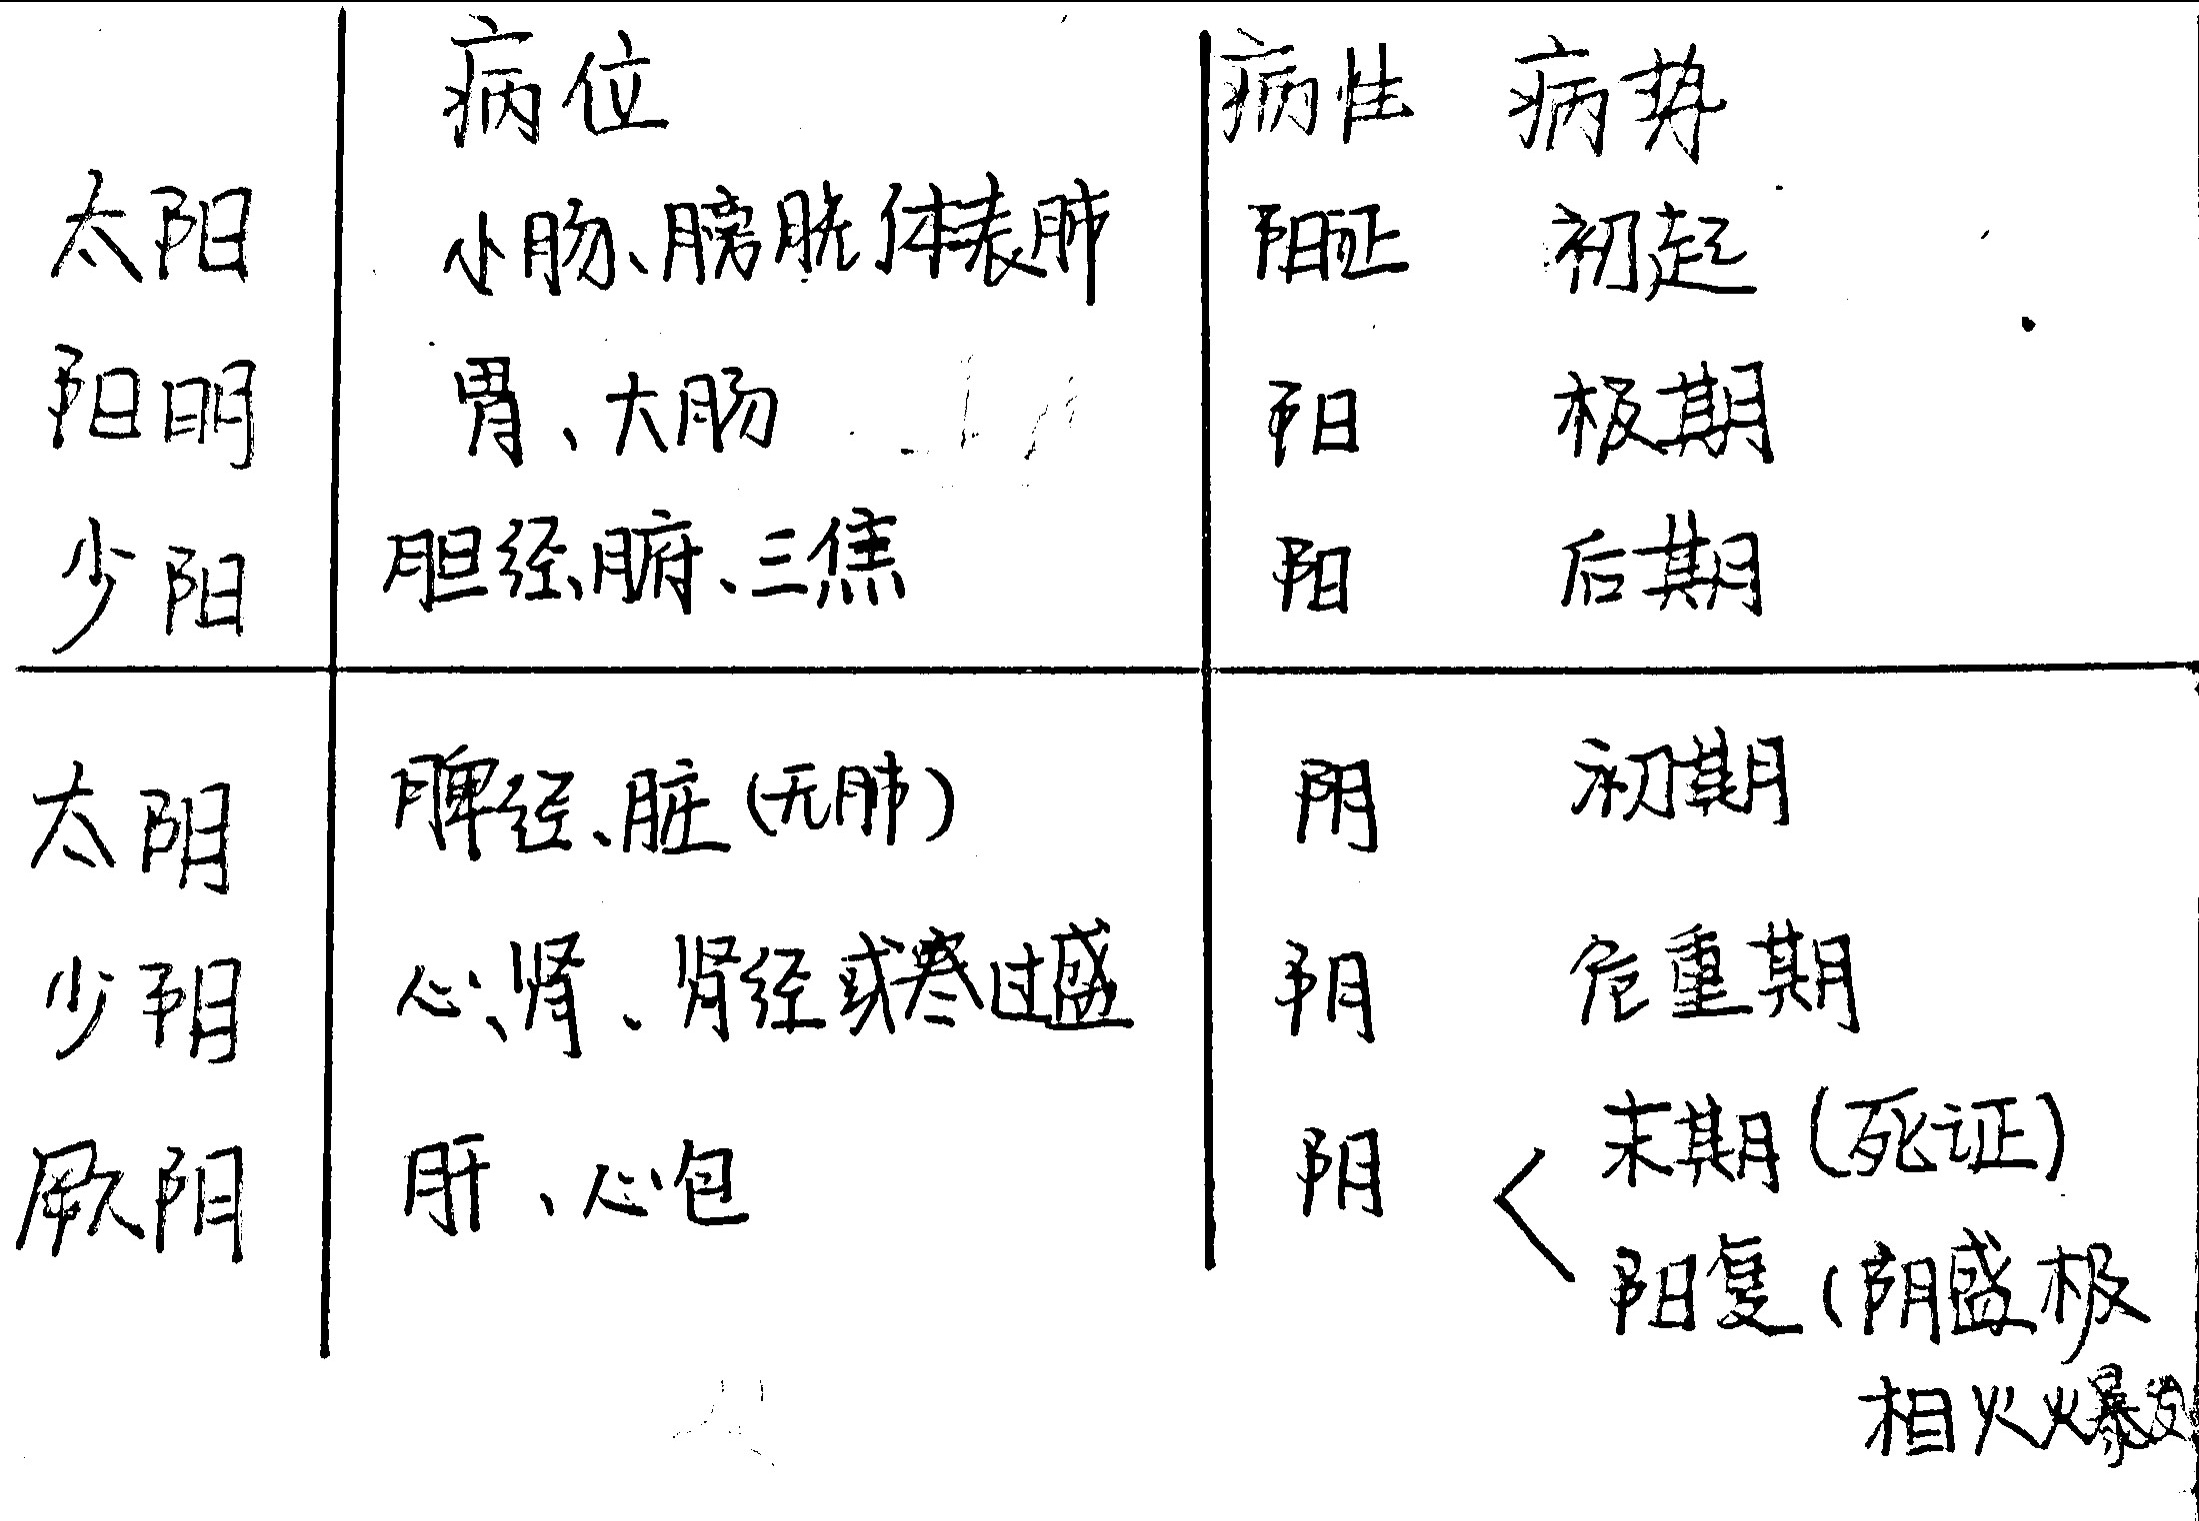 病位 病性 病势
太阳 小肠、膀胱体表肺 阳证 初起
阳明 胃、大肠 阳 极期
少阳 胆经、腑、三焦 阳 后期
太阴 脾经、脏(无肺) 阴 初期
少阴 心、肾、肾经或寒过盛 阴 危重期
厥阴 肝、心包 阴 末期(死证)
阳复(阴盛极
相火爆发